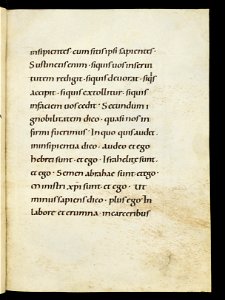 insipientes · cum sitis ipsi sapientes ·
Sustinetis enim · siquis uos inserui
tutem redigit · siquis deuorat · siqs
accipit · siquis extollitur · siquis
infaciem uos cedit · Secundum i
gnobilitatem dico · quasi nos in
firmi fuerimus · In quo quis audet ·
in insipientia dico · audeo et ego
hebrei sunt · et ego · Israhelitę sunt ·
et ego · Semen abrahae sunt · et ego ·
ministri xpi sunt · et ego · Ut
minus sapiens dico · plus ego · In
labore et erumna · in carceribus